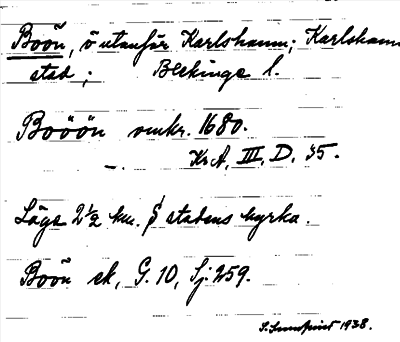 Boön, ö utanför Karlshamn; Karlshamn
stad; Blekinge l.
Boöön omkr. 1680.
Kr A, III, D, 35.
Läge 2½ km. S stadens kyrka.
Boön ek, G. 10, Sj: 259.
1938.